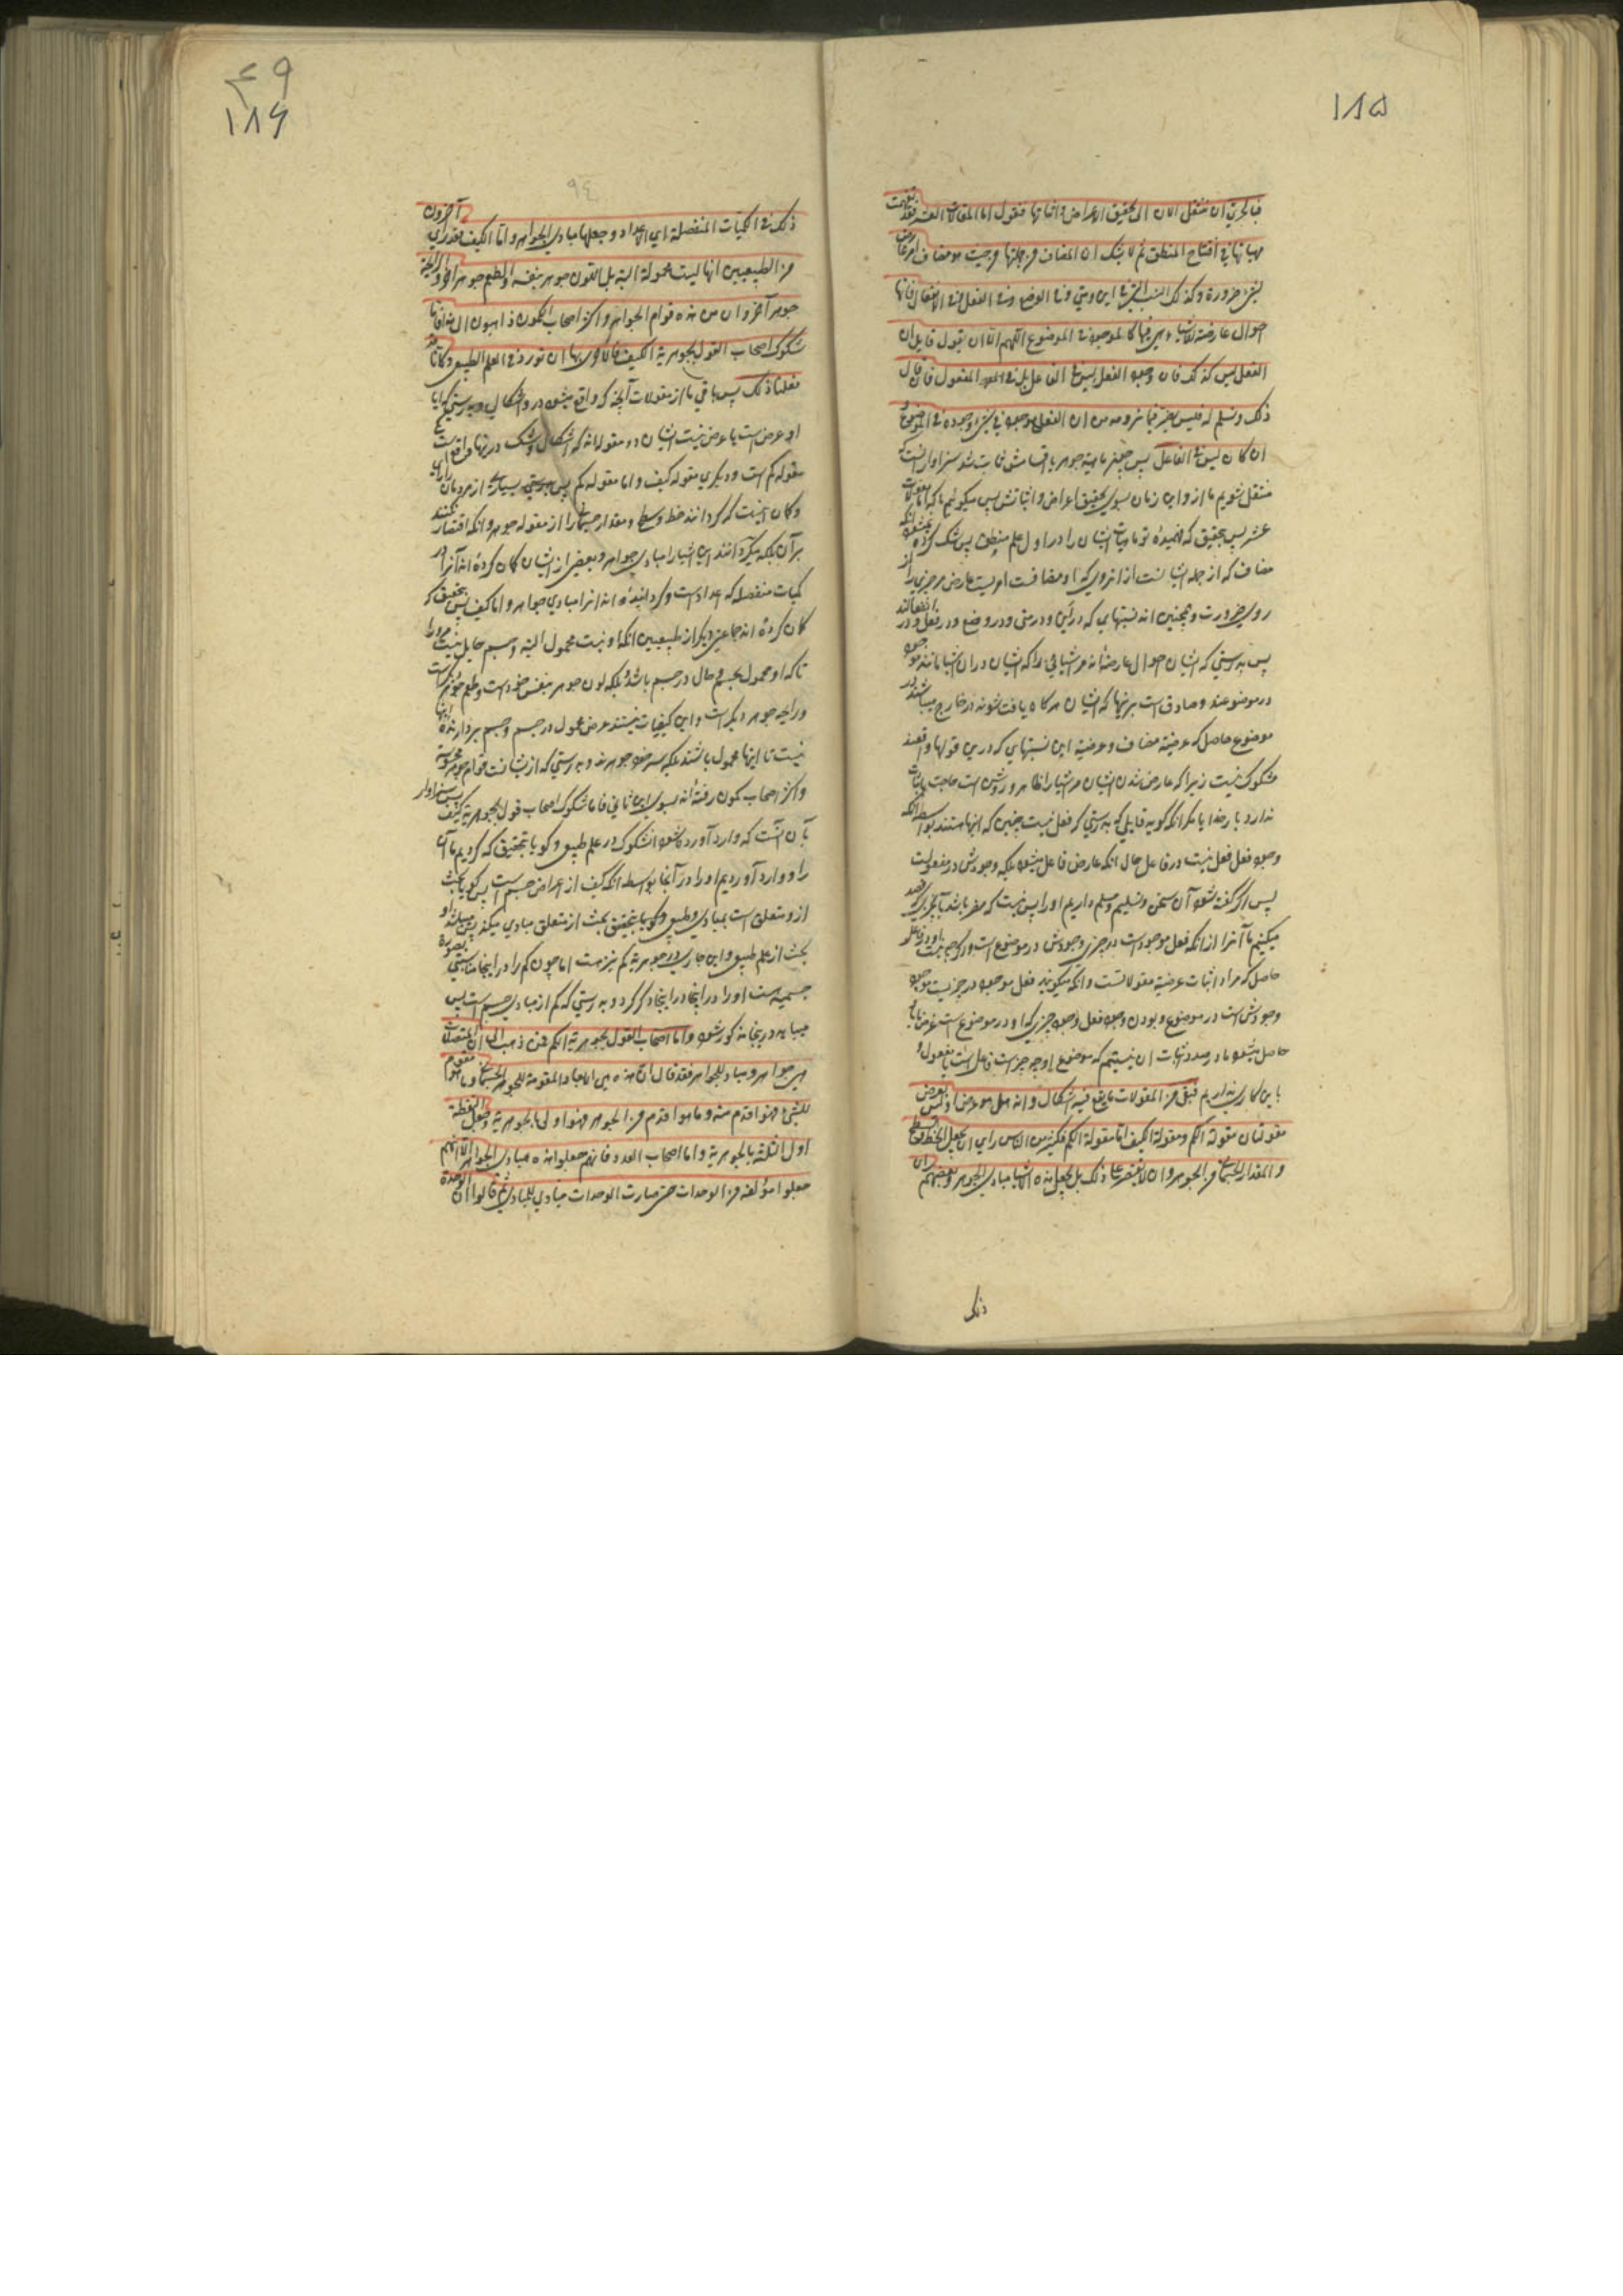 ۱۸۵
فبالحری ان ننتقل الان الی تحقیق الاعراض و اثباتها فنقول اما المقالات العشر فقد تفهمت
مهیاتها فی افتتاح المنطق ثم لا یشک ان المضاف من جملتها من حیث هو مضاف امر عارض
لشیء ضرورة و کذلک النسب التی هی فی این و متی و فی الوضع و فی الفعل و فی الانفعال فانها
احوال عارضة لاشیاء هی فیها کالموجود فی الموضوع اللهم الا ان یقول قایل ان
الفعل لیس کذلک فان وجود الفعل لیس فی الفاعل بل فی المفعول فان قال
ذلک و سلم له فلیس یضر فیما نرومه من ان الفعل موجود فی شیء وجوده فی الموضوع و
ان کان لیس فی الفاعل پس چنانچه ماهیة جوهر باقسامش ثابت شد سزاوار آنست که
منتقل شویم ما ازو این زمان بسوی تحقیق اعراض و اثباتش پس میگوئیم ما که اما مقولات
عشر پس بتحقیق که فهمیدۀ تو ماهیات ایشان را در اول علم منطق پس شک کرده نمیشود آنکه
مضاف که از جمله ایشانست از آنروی که او مضافست امریست عارض مر چیزی را از
روی ضرورت و همچنین اند نسبتهایی که در این و در متی و در وضع و در فعل و در انفعالند
پس بدرستی که ایشان احوال عارضه‌اند مر اشیایی را که ایشان در آن اشیا مانند موجود
در موضوعند و صادق است برینها که ایشان هرگاه یافت شوند در خارج میباشند در
موضوع حاصل که عرضیة مضاف و عرضیة این نسبتهایی که درین قولها واقعند
مشکوک نیست زیرا که عارض شدن ایشان مر اشیا را ظاهر و روشن است حاجت باثبات
ندارد بار خدایا مگر آنکه گوید قایلی که بدرستی که فعل نیست چنین که اینها هستند بواسطه آنکه
وجود فعل فعل نیست در فاعل حال آنکه عارض فاعل میشود بلکه وجودش در مفعولست
پس اگر گفته شود آن سخن و تسلیم و مسلم داریم او را پس نیست که مضر باشد بآنچیزی که قصد
میکنیم ما آنرا از آنکه فعل موجود است در چیزی وجودش در موضوع است و اگر چه نیست او در فاعل
حاصل که مراد اثبات عرضیة مقولاتست و آنکه میگویند فعل موجود در چیزیست موجود
وجودش است در موضوع و بودن وجود فعل وجود چیزی که او در موضوع است غرض ما
حاصل میشود ما در صدد اثبات آن نیستیم که موضوع او چه چیز است فاعل است یا مفعول و
باین کاری نداریم فبقی من المقولات ما یقع فیه اشکال و انه هل هو عرض او لیس بعرض
مقولتان مقولة الکم و مقولة الکیف اما مقولة الکم فکثیر من الناس رای ان یجعل الخط و السطح
و المقدار الجسمانی من الجوهر و ان لا یقتصر علی ذلک بل یجعل هذه الاشیا مبادی الجوهر و بعضهم رای
ذلک
۴۹
۱۸۶
۹۴
ذلک فی الکمیات المنفصلة ای الاعداد و جعلها مبادی الجواهر و اما الکیف فقد رای آخرون
من الطبیعیین انها لیست محمولة البتة بل اللون جوهر بنفسه و الطعم جوهر آخر و الرایحة
جوهر آخر و ان من هذه قوام الجواهر و اکثر اصحاب الکمون ذاهبون الی هذا فاما
شکوک اصحاب القول بجوهریة الکیف فالاولی بها ان نورد فی العلم الطبیعی و کانا قد
فعلنا ذلک پس باقی ماند از مقولات آنچه که واقع میشود در و اشکال و بدرستی که ایا
او عرض است یا عرض نیست ایشان دو مقوله‌اند که اشکال و شک در ینها واقع است یکی
مقوله کم است و دیگری مقوله کیف و اما مقوله کم پس بدرستی بسیاری از مردمان را رای
و گمان اینست که گردانند خط و سطح و مقدار جسمانی را از مقوله جوهر و آنکه اقتصار نکنند
بر آن بلکه میگردانند این اشیا را مبادی جواهر و بعضی از ایشان گمان کرده‌اند آنرا در
کمیات منفصله که اعداد است و گردانیده‌اند آنرا مبادی جواهر و اما کیف پس بتحقیق که
گمان کرده‌اند جماعتی دیگر از طبیعیین آنکه او نیست محمول البته و جسم حامل نیست مر او را
تا که او محمول بجسم و حال در جسم باشد بلکه لون جوهر بنفس خود است و طعم جوهر دیگر است
و رایحه جوهر دیگر است و این کیفیات نیستند عرض محمول در جسم و جسم بردارنده اینها
نیست تا اینها محمول باشند بلکه سر خود جوهرند و بدرستی که از ایشانست قوام جوهر محسوسه
و اکثر اصحاب کمون رفته‌اند بسوی این ثانی فاما شکوک اصحاب قول بجوهریة کیف پس سزاوار
بآن آنست که وارد آورده شود آن شکوک در علم طبیعی و گویا بتحقیق که کردیم ما آن
را و وارد آوردیم او را در آنجا بواسطه آنکه کیف از اعراض جسم است پس گویا بحث
ازو متعلق است بمبادی و طبیعی و گویا بتحقیق بحث از متعلق مبادی میکند پس میباشد او
بحث از علم طبیعی و این جاری در جوهریة کم نیز هست اما چون کم را در اینجا مناسبتی بصورة
جسمیه هست او را در اینجا ذکر کرد و بدرستی که کم از مبادی جسم است پس
میباید درینجا مذکور شود و اما اصحاب القول بجوهریة الکم فمن ذهب الی ان المتصلات
هی جواهر و مباد للجواهر فقد قال ان هذه هی الابعاد المقومة للجوهر الجسمانی و ما هو مقوم
للشیء فهو اقدم منه و ما هو اقدم من الجوهر فهو اولی بالجوهریة و جعل النقطة
اولی الثلثة بالجوهریة و اما اصحاب العدد فانهم جعلوا هذه مبادی الجواهر الا انهم
جعلوا مؤلفة من الوحدات حتی صارت الوحدات مبادی للمبادی ثم قالوا ان الوحدة